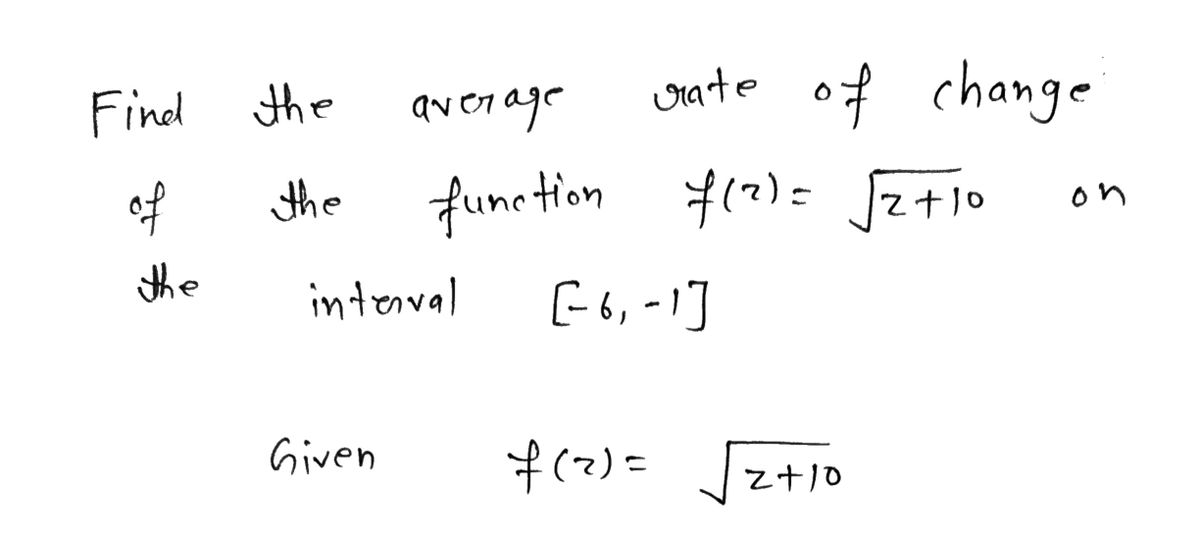 Find the average rate of change
of the function f(z) = √z+10 on
the interval [-6, -1]
Given f(z) = √z+10